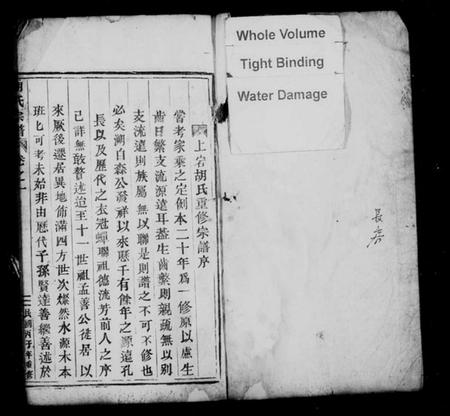 Whole Volume
Tight Binding
Water Damage
上宕胡氏重修宗譜序
嘗考家乘之定創本二十年爲一修原以慮生
齒日繁支流源遠耳蓋生齒繁則親疏無以别
支流遠則族屬無以聯是則譜之不可不修也
必矣溯自森公發祥以來歷千有餘年之源遠孔
長以及歷代之衣冠蟬聯祖德流芳前人之序
己詳無敢贅述迨至十一世祖孟善公徒居以
來厥後遷居異地佈滿四方世次燦然水源木本
班匕可考未始非由歷代子孫賢達善繼善述於
胡氏宗譜
卷之一
民國丙子年重修